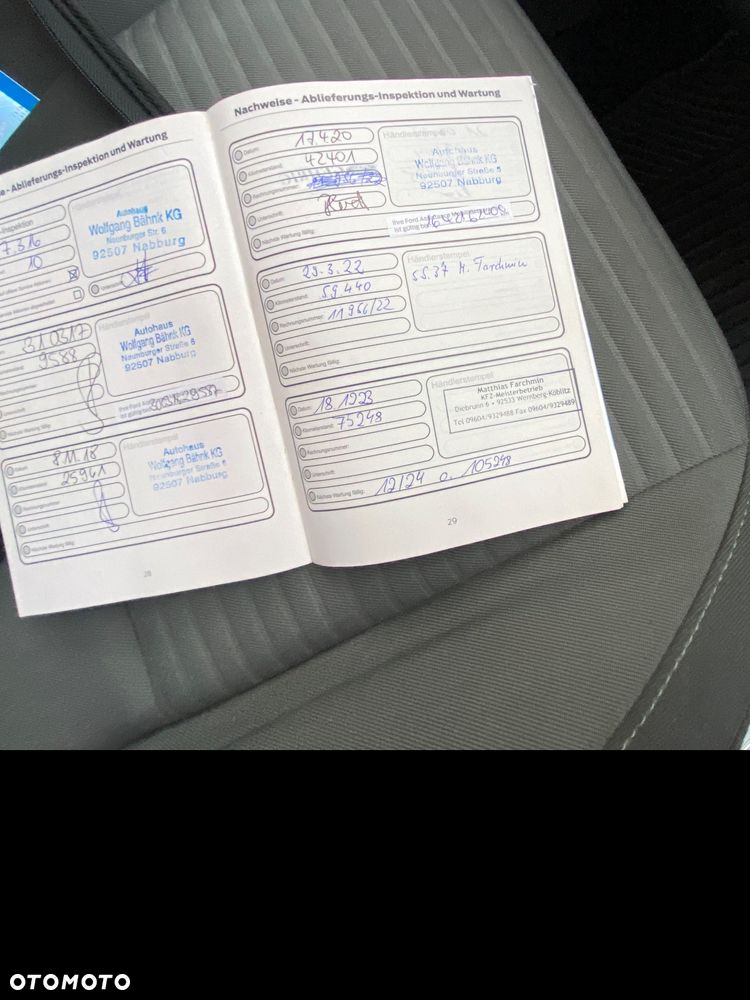 e - Ablieferungs-Inspektion und Wartung
-Inspektion
7.3.16
10
Unterschrift:
Händlerstempel
Autohaus
Wolfgang Bähnk KG
Neunburger Str. 6
92507 Nabburg
31.03.17
9588
Unterschrift
Nächste Wartung fällig:
Händlerstempel
Autohaus
Wolfgang Bähnk KG
Neunburger Straße 6
92507 Nabburg
Datum:
8.11.18
Kilometerstand:
25941
Rechnungsnummer:
Unterschrift:
Nächste Wartung fällig:
Händlerstempel
Autohaus
Wolfgang Bähnk KG
Neunburger Straße 6
92507 Nabburg
28
Nachweise - Ablieferungs-Inspektion und Wartung
Datum:
17.4.20
Kilometerstand:
42401
Rechnungsnummer:
Unterschrift:
Nächste Wartung fällig:
Händlerstempel
Autohaus
Wolfgang Bähnk KG
Neunburger Straße 6
92507 Nabburg
Ihre Ford
ist gültig bis
Datum:
29.3.22
Kilometerstand:
59.440
Rechnungsnummer:
11956/22
Unterschrift:
Nächste Wartung fällig:
Händlerstempel
M. Farchmin
Datum:
18.12.23
Kilometerstand:
75248
Rechnungsnummer:
Unterschrift:
Nächste Wartung fällig:
12/24 o. 105248
Händlerstempel
Matthias Farchmin
KFZ-Meisterbetrieb
Diebrunn 6 • 92533 Wernberg-Köblitz
Tel 09604/9329488 Fax 09604/9329489
29
OTOMOTO